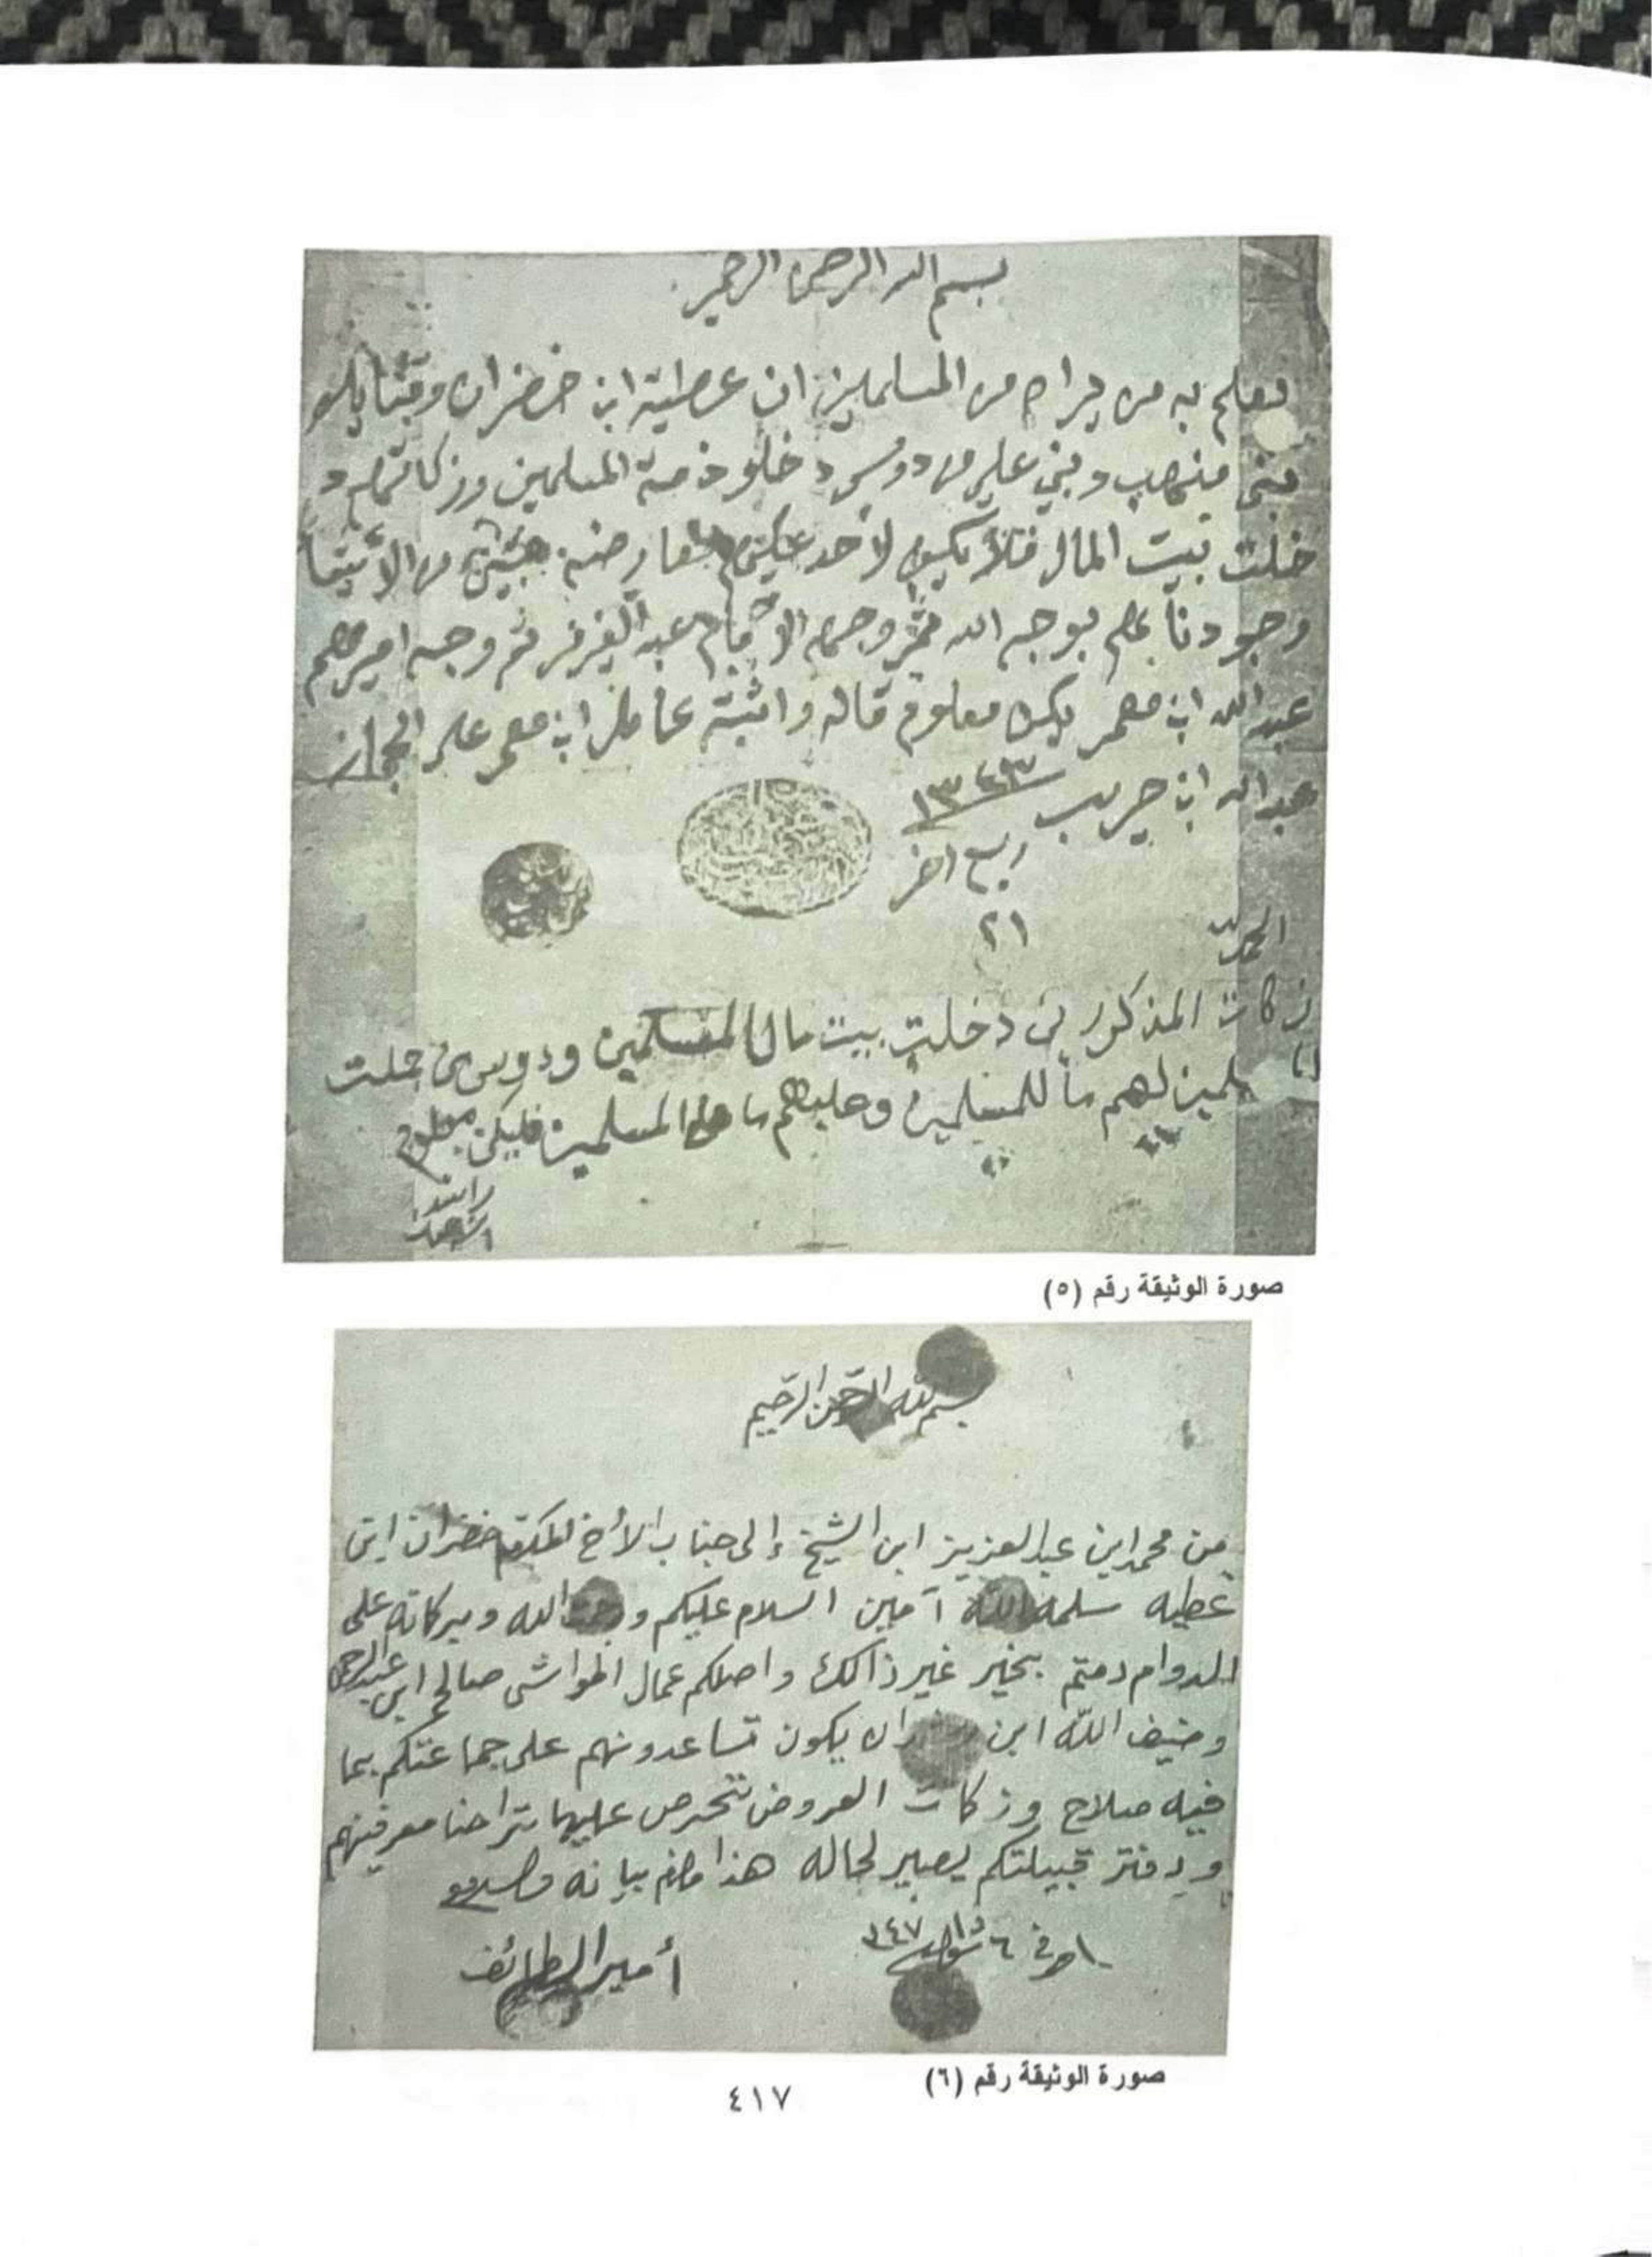 بسم الله الرحمن الرحيم
يعلم به من يراه من المسلمين ان عطية ابن خضران وقبايله
بني منهب وبني علي من دوس دخلو ذمة المسلمين وزكاتهم د
خلت بيت المال فلا يكون لاحد عليهم معارضة من الاشيا
وجودنا بوجه الله ثم وجه الامام عبد العزيز ثم وجه اميرهم
عبد الله ابن معمر يكون معلوم قاله واثبته عامل ابن معمر على الحجاز
عبد الله ابن حريب ١٣٤٣
ربيع اخر
٢١
الحمد لله
زكات المذكورين دخلت بيت مال المسلمين ودوس من جملت
المسلمين لهم ما للمسلمين وعليهم ما على المسلمين فليكن معلوم
راشد
صورة الوثيقة رقم (٥)
بسم الله الرحمن الرحيم
من محمد ابن عبد العزيز ابن الشيخ إلى جناب الأخ المكرم خضران ابن
عطيه سلمه الله آمين السلام عليكم ورحمت الله وبركاته على
الدوام دمتم بخير غير ذالك واصلكم عمال المواشي صالح ابن عبد الرحمن
وضيف الله ابن يكون تساعدونهم على جماعتكم بما
فيه صلاح وزكات العروض تتحرص عليها معرفتهم
ودفتر قبيلتكم يصير لحاله هذا مالزم بيانه والسلام
حرر في ٦ شوال ١٣٤٧
أمير الطائف
صورة الوثيقة رقم (٦)
٤١٧